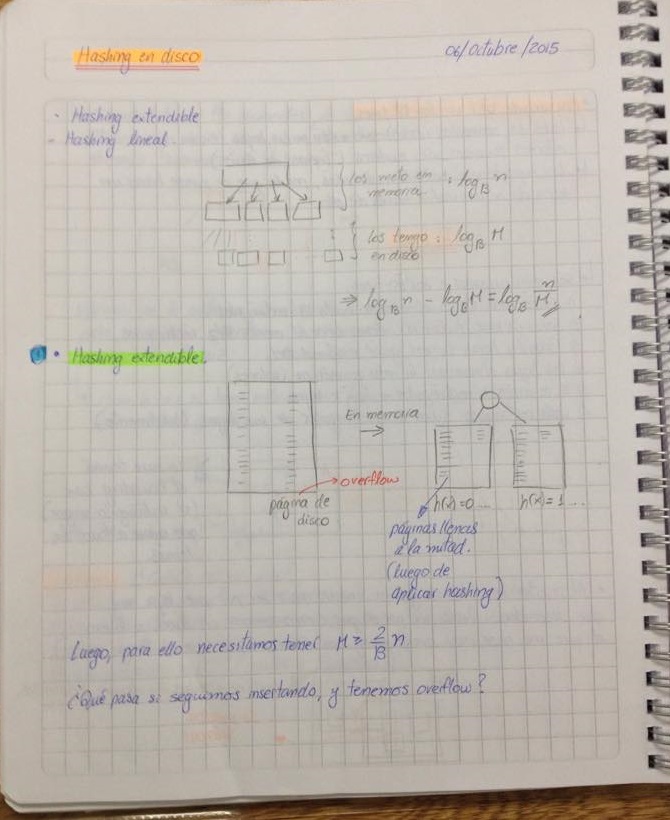 Hashing en disco
06/Octubre/2015
- Hashing extendible
- Hashing lineal.
los meto en : log_B n
memoria
los tengo : log_B M
en disco
⇒ log_B n - log_B M = log_B n/M
• Hashing extendible.
En memoria
→
overflow
página de
disco
h(x)=0...
h(x)=1...
páginas llenas
a la mitad.
(luego de
aplicar hashing)
Luego, para ello necesitamos tener M ≥ 2/B n
¿Qué pasa si seguimos insertando, y tenemos overflow?